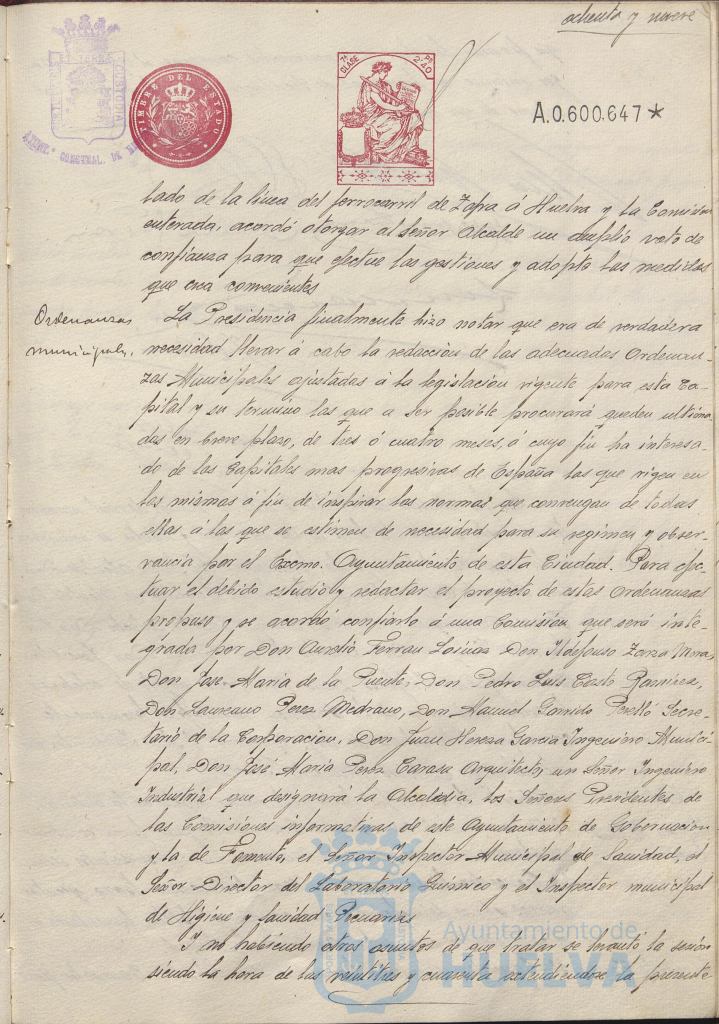 ochenta y nueve
TIMBRE DEL ESTADO
7ª CLASE
Pts 2'40
A.0.600.647*
lado de la linea del ferrocarril de Zafra á Huelva y la Comisión
enterada, acordó otorgar al Señor Alcalde un amplio voto de
confianza para que efectue las gestiones y adopte las medidas
que crea convenientes
Ordenanzas
municipales.
La Presidencia finalmente hizo notar que era de verdadera
necesidad llevar á cabo la redacción de las adecuadas Ordenan-
zas Municipales ajustadas á la legislación vigente para esta Ca-
pital y su termino las que a ser posible procurará queden ultima-
das en breve plazo, de tres ó cuatro meses, á cuyo fin ha interesa-
do de las Capitales mas progresivas de España las que rigen en
las mismas á fin de inspirar las normas que convengan de todas
ellas, á las que se estimen de necesidad para su regimen y obser-
vancia por el Excmo. Ayuntamiento de esta Ciudad. Para efec-
tuar el debido estudio y redactar el proyecto de estas Ordenanzas
propuso y se acordó confiarlo á una Comisión que será inte-
grada por Don Aurelio Ferrau Don Ildefonso Zarza Mora,
Don Jose Maria de la Puente, Don Pedro Luis Ramirez,
Don Laureano Perez Medrano, Don Manuel Garrido Perelló Secre-
tario de la Corporacion, Don Juan Garcia Ingeniero Munici-
pal, Don José Maria Perez Carasa Arquitecto, un Señor Ingeniero
Industrial que designará la Alcaldia, los Señores Presidentes de
las Comisiones informativas de este Ayuntamiento de Gobernacion
y la de Fomento, el Señor Inspector Municipal de Sanidad, el
Señor Director del Laboratorio Quimico y el Inspector municipal
de Higiene y Sanidad Pecuarias
Y no habiendo otros asuntos de que tratar se levantó la sesion
siendo la hora de las veintitres y cuarenta extendiendose la presente
Ayuntamiento de
HUELVA